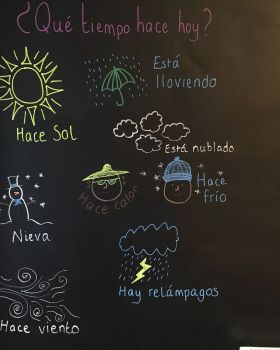 ¿Qué tiempo hace hoy?
Está
lloviendo
Hace Sol
Está nublado
Hace calor
Hace
frío
Nieva
Hay relámpagos
Hace viento